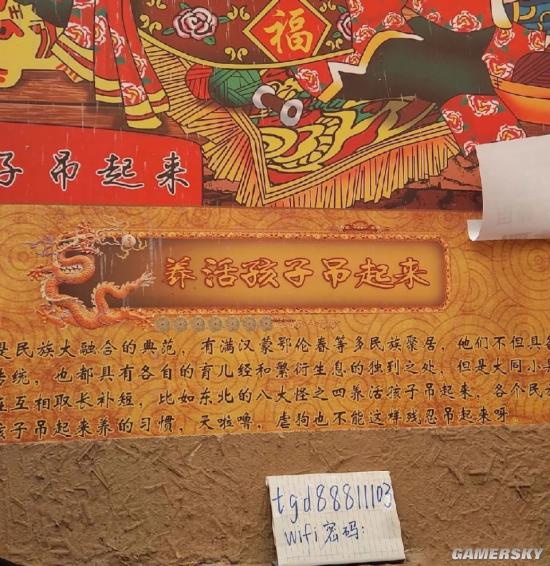 福
子吊起来
养活孩子吊起来
是民族大融合的典范，有满汉蒙鄂伦春等多民族聚居，他们不但具备
传统，也都具有各自的育儿经和繁衍生息的独到之处，但是大同小异
互相取长补短，比如东北的八大怪之四养活孩子吊起来，各个民
孩子吊起来养的习惯，天啦噜，虐狗也不能这样残忍吊起来呀
tgd88811103
wifi密码：
GAMERSKY